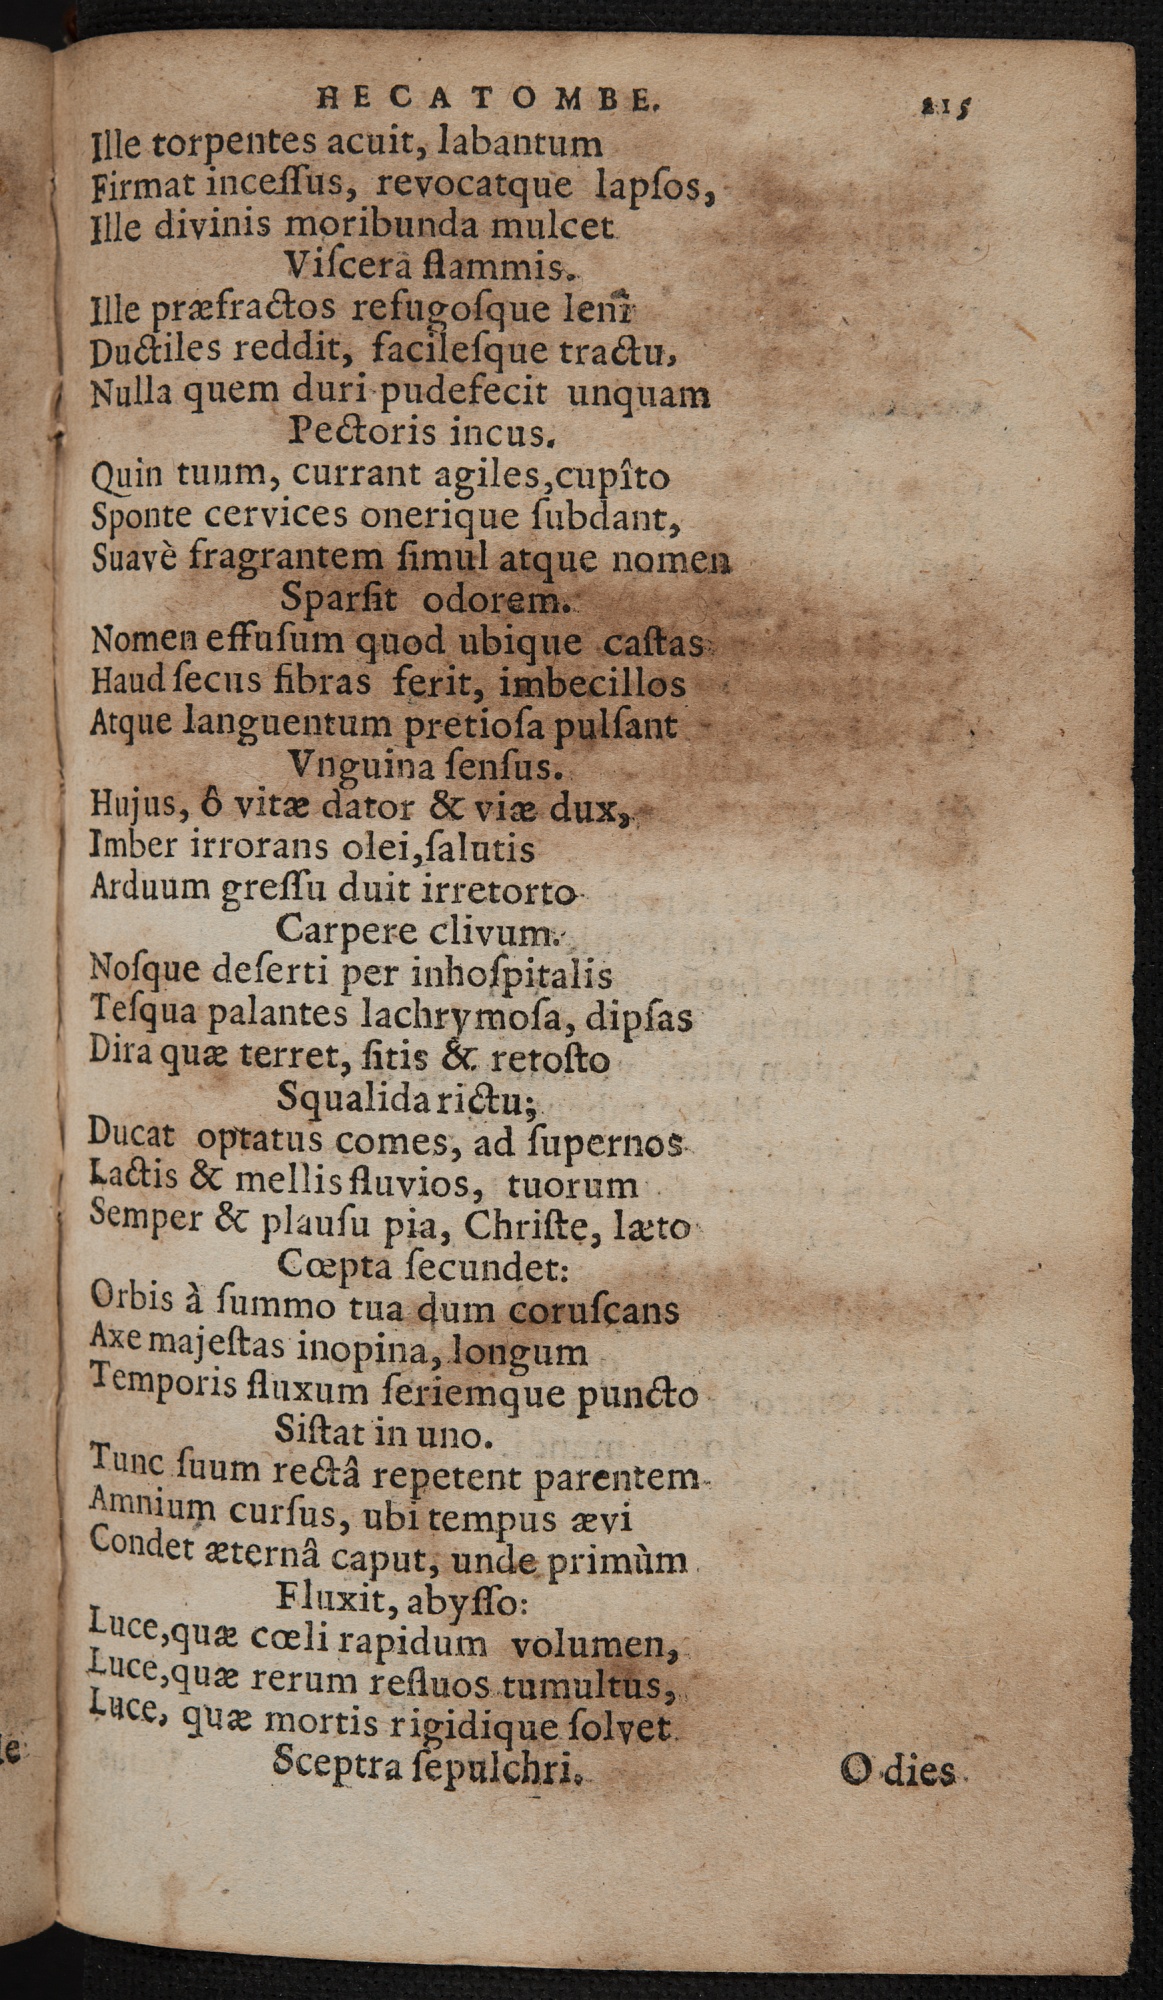 HECATOMBE. 215
Ille torpentes acuit, labantum
Firmat inceſſus, revocatque lapſos,
Ille divinis moribunda mulcet
Viſcera flammis.
Ille præfractos refugoſque leni
Ductiles reddit, facileſque tractu,
Nulla quem duri pudefecit unquam
Pectoris incus.
Quin tuum, currant agiles, cupîto
Sponte cervices onerique ſubdant,
Suavè fragrantem ſimul atque nomen
Sparſit odorem.
Nomen effuſum quod ubique caſtas
Haud ſecus fibras ferit, imbecillos
Atque languentum pretioſa pulſant
Vnguina ſenſus.
Hujus, ô vitæ dator & viæ dux,
Imber irrorans olei, ſalutis
Arduum greſſu duit irretorto
Carpere clivum.
Noſque deſerti per inhoſpitalis
Teſqua palantes lachrymoſa, dipſas
Dira quæ terret, ſitis & retoſto
Squalida rictu;
Ducat optatus comes, ad ſupernos
Lactis & mellis fluvios, tuorum
Semper & plauſu pia, Chriſte, læto
Cœpta ſecundet:
Orbis à ſummo tua dum coruſcans
Axe majeſtas inopina, longum
Temporis fluxum ſeriemque puncto
Siſtat in uno.
Tunc ſuum rectâ repetent parentem
Amnium curſus, ubi tempus ævi
Condet æternâ caput, unde primùm
Fluxit, abyſſo:
Luce, quæ cœli rapidum volumen,
Luce, quæ rerum refluos tumultus,
Luce, quæ mortis rigidique ſolvet
Sceptra ſepulchri.
O dies